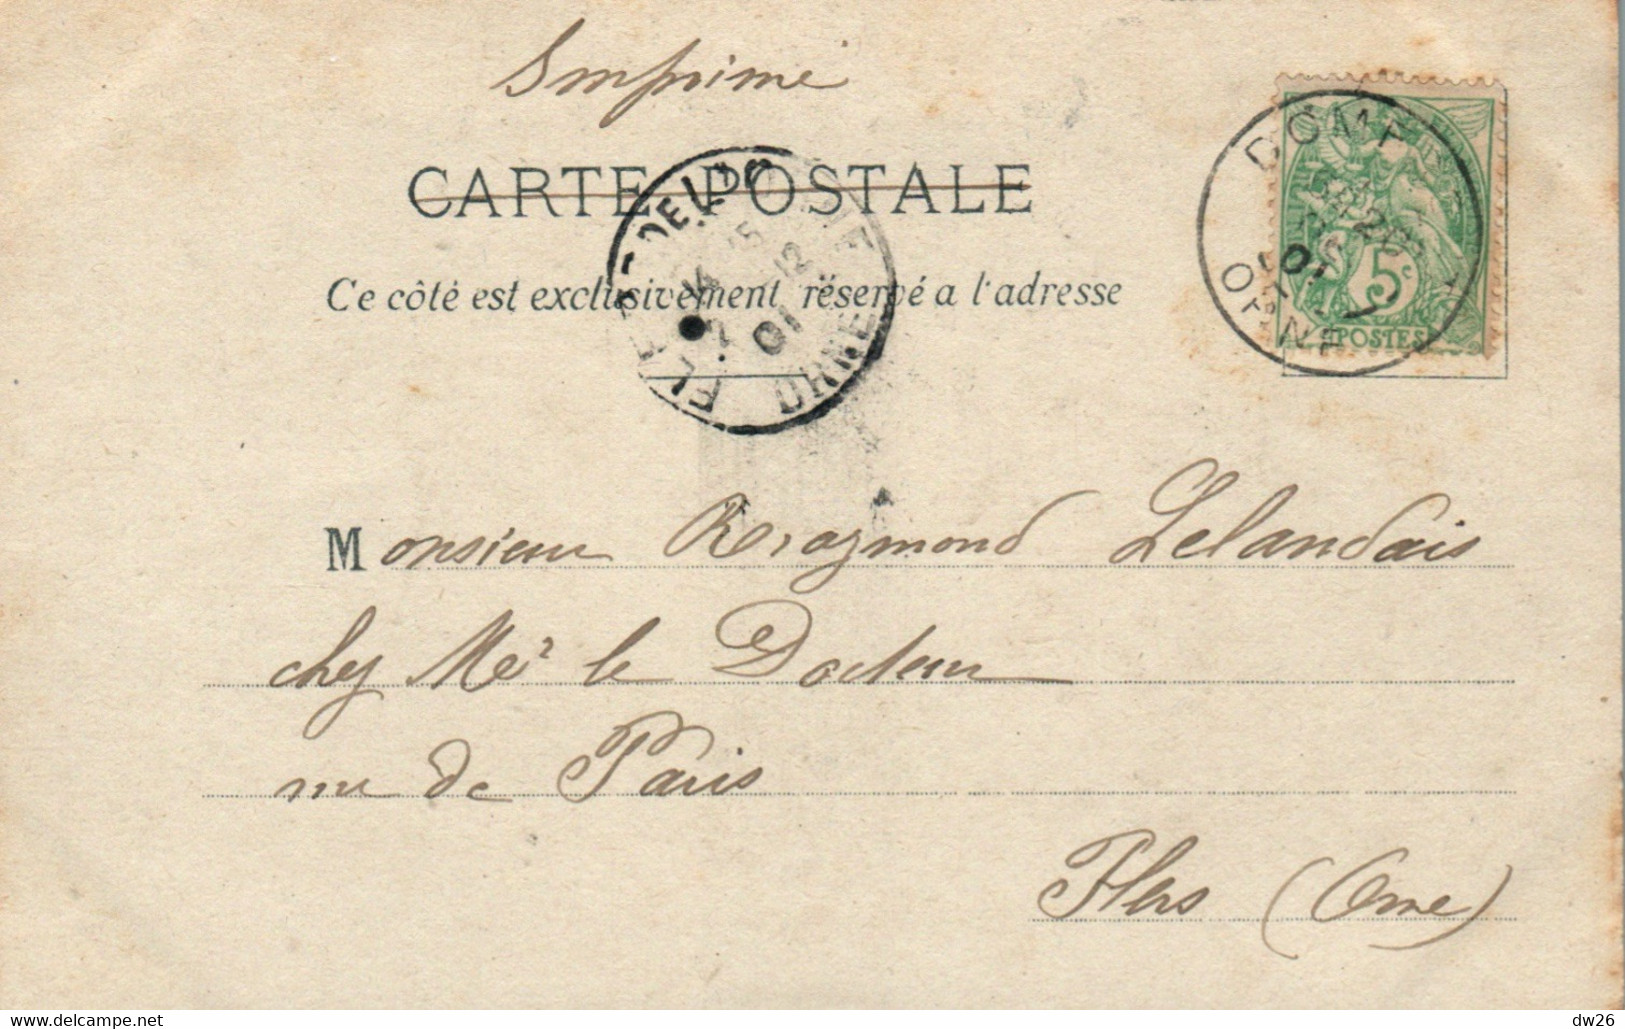 Imprimé
CARTE POSTALE
Ce côté est exclusivement réservé a l'adresse
DOMF
ORNE
01
5c
POSTES
FLERS-DE-L'
14
12
01
ORNE
Monsieur Raymond Lelandais
chez Mer le Docteur
rue de Paris
Flers (Orne)
www.delcampe.net
dw26